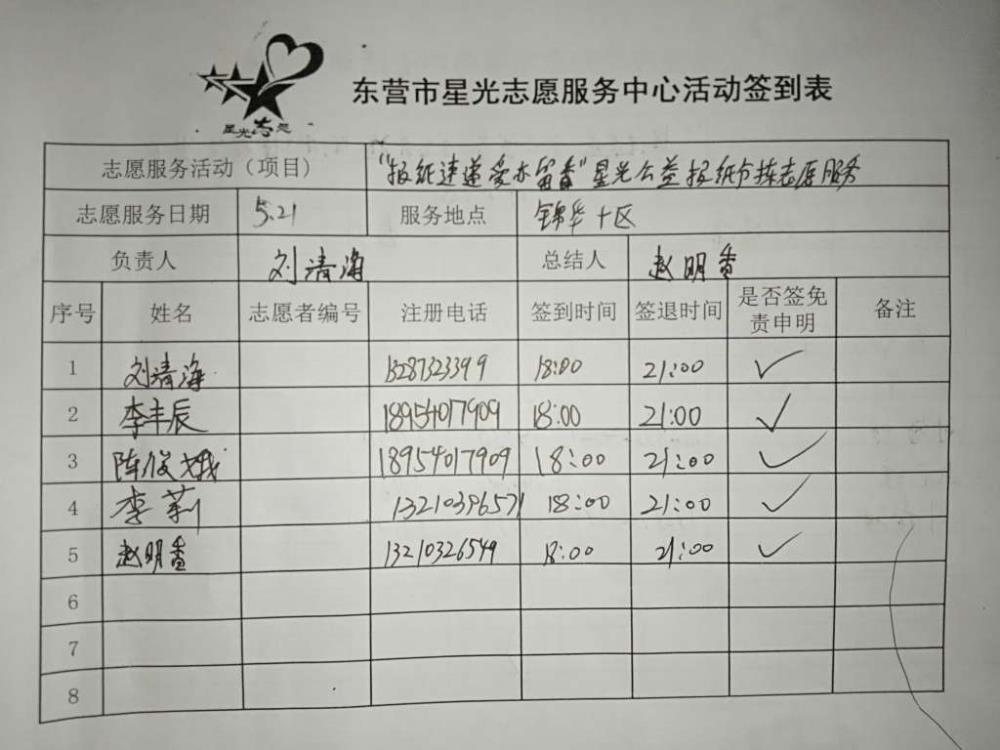 星光志愿
东营市星光志愿服务中心活动签到表
志愿服务活动（项目） "报纸速递爱亦留香"星光公益报纸分拣志愿服务
志愿服务日期 5.21 服务地点 锦华十区
负责人 刘清海 总结人 赵明香
序号 姓名 志愿者编号 注册电话 签到时间 签退时间 是否签免责申明 备注
1 刘清海 18:00 21:00 ✓
2 李丰辰 18954017909 18:00 21:00 ✓
3 陈俊娥 18954017909 18:00 21:00 ✓
4 李莉 13210396571 18:00 21:00 ✓
5 赵明香 13210326549 18:00 21:00 ✓
6
7
8